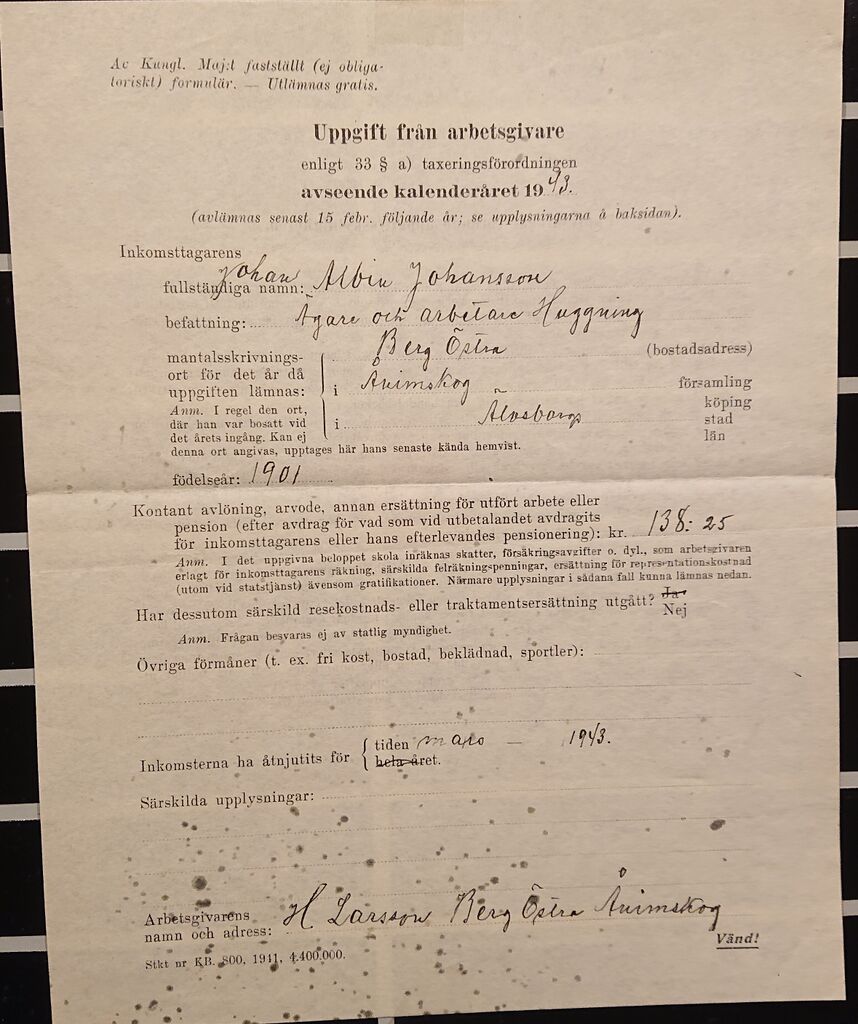 Av Kungl. Maj:t fastställt (ej obliga-
toriskt) formulär. — Utlämnas gratis.
Uppgift från arbetsgivare
enligt 33 § a) taxeringsförordningen
avseende kalenderåret 1943.
(avlämnas senast 15 febr. följande år; se upplysningarna å baksidan).
Inkomsttagarens
fullständiga namn: Johan Albin Johansson
befattning: Ägare och arbetare Huggning
mantalsskrivnings-
ort för det år då
uppgiften lämnas:
Berg Östra (bostadsadress)
i Ånimskog församling
i Älvsborgs köping
stad
län
Anm. I regel den ort,
där han var bosatt vid
det årets ingång. Kan ej
denna ort angivas, upptages här hans senaste kända hemvist.
födelseår: 1901
Kontant avlöning, arvode, annan ersättning för utfört arbete eller
pension (efter avdrag för vad som vid utbetalandet avdragits
för inkomsttagarens eller hans efterlevandes pensionering): kr. 138:25
Anm. I det uppgivna beloppet skola inräknas skatter, försäkringsavgifter o. dyl., som arbetsgivaren
erlagt för inkomsttagarens räkning, särskilda felräkningspenningar, ersättning för representationskostnad
(utom vid statstjänst) ävensom gratifikationer. Närmare upplysningar i sådana fall kunna lämnas nedan.
Har dessutom särskild resekostnads- eller traktamentsersättning utgått? Ja
Nej
Anm. Frågan besvaras ej av statlig myndighet.
Övriga förmåner (t. ex. fri kost, bostad, beklädnad, sportler):
Inkomsterna ha åtnjutits för
tiden mars — 1943.
hela året.
Särskilda upplysningar:
Arbetsgivarens
namn och adress: H Larsson Berg Östra Ånimskog
Vänd!
Stkt nr KB. 800, 1941, 4.400.000.